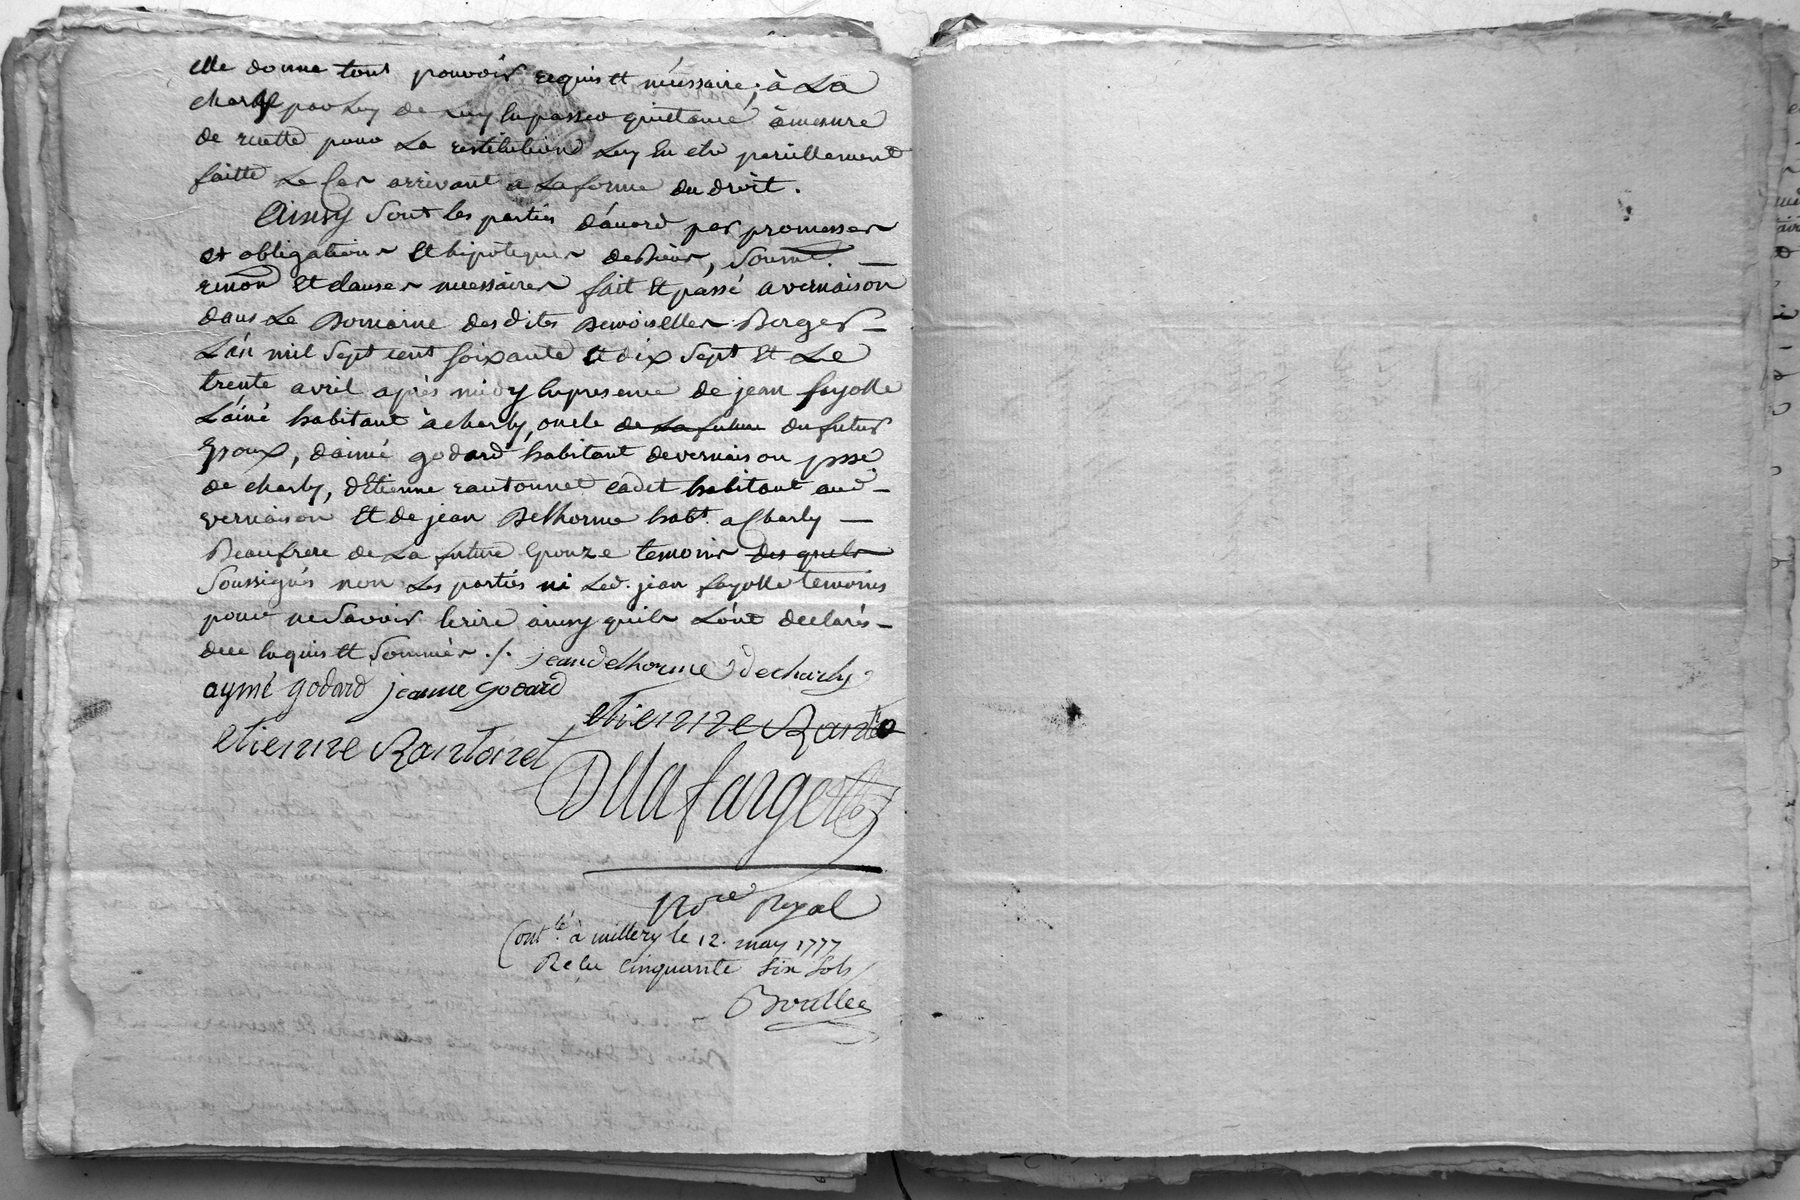 elle donne tout pouvoir requis et nécessaire, à La
charge par Luy de Luy en passer quittance à mesure
de recette pour La restitution Luy en etre pareillement
faitte Le Cas arrivant a La forme du droit.
Ainsy Sont les parties d'acord par promesses
et obligations et hipoteques de biens, Soum.
renon et clauses necessaires fait et passé a vernaison
dans Le Domaine desdites Demoiselles Berger
L'an mil Sept cent soixante et dix sept et Le
trente avril après midy en presence de jean fayolle
L'ainé habitant à charly, oncle de La future du futur
Epoux, d'aimé godard habitant de vernaison psse
de charly, d'Etienne rantonnet cadet habitant aud
vernaison et de jean Delhorme habt. a Charly
Beaufrere de La future Epouze temoins des quels
Soussignés non Les parties ni Led. jean fayolle temoins
pour ne Savoir Ecrire ainsy quils L'ont declarés
de ce enquis et Sommés ./. jean delhorme de charly
aymé godard jeanne godard
etienne Ranto
etienne Rantonet
Dllafargette
No.re Royal
Cont.lé à millery le 12. may 1777
Reçu Cinquante Six Sols
Boullée